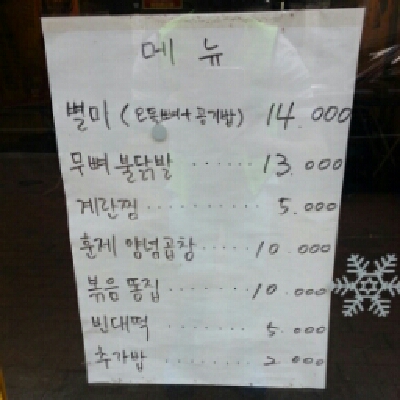 메 뉴
별미 (오돌뼈+공기밥) 14.000
무뼈 불닭발 ······ 13.000
계란찜 ·········· 5.000
훈제 양념곱창 ····· 10.000
볶음 똥집 ······ 10.000
빈대떡 ········ 5.000
추가밥 ········ 2.000